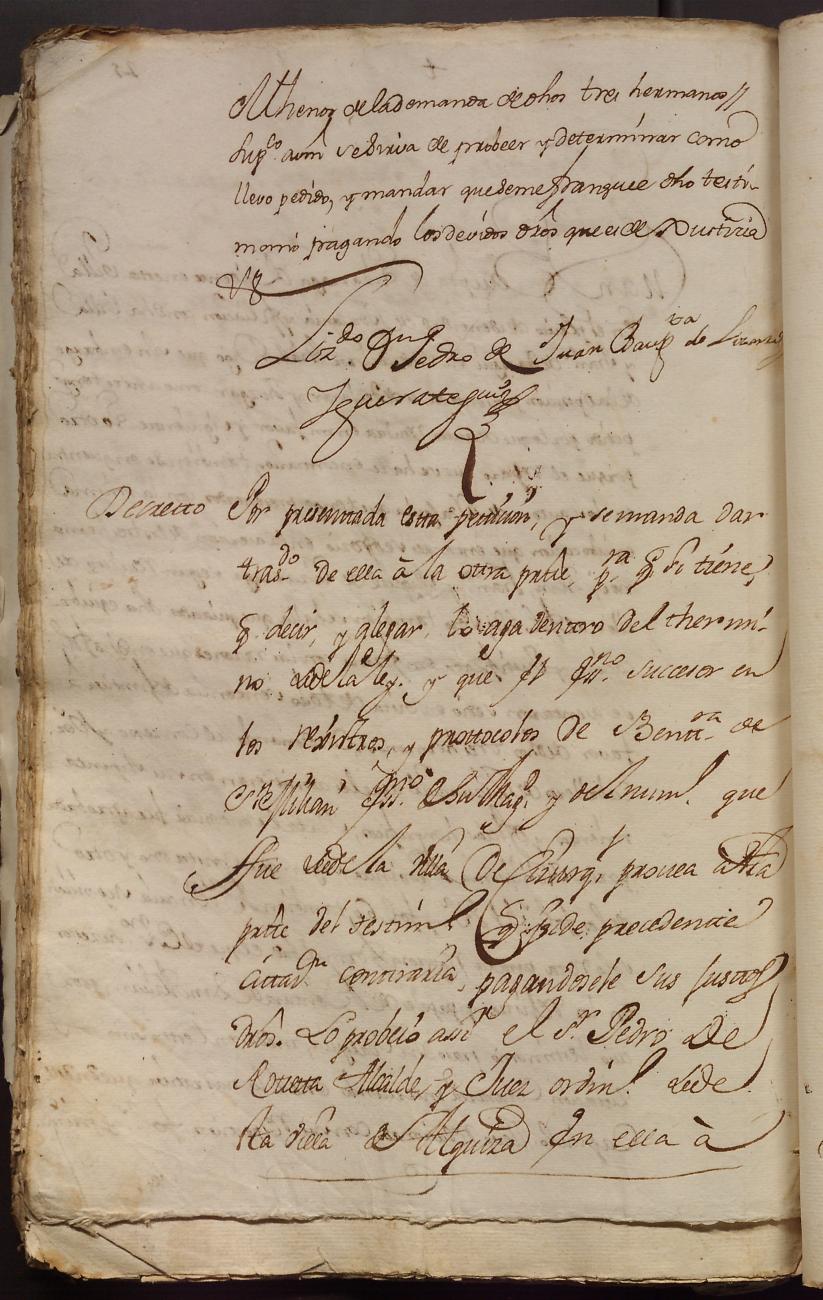 Al thenor dela demanda de dhos tres hermanos //
Supco a vm se sirva de probeer y determinar como
llevo pedido, y mandar que deme franquee dho testi-
monio pagando los devidos dros que es de Justicia
Vª
Lizdo Dn Pedro de Juan Bauptta de
Yguerategui
Decretto Por presentada esta peticion, y se manda dar
trasdo de ella à la otra partte, pra q si tiene
q decir, y alegar, lo aga dentro del thermi-
no de la ley. y que el essno succesor en
los rexistros, y prottocolos de Bentra de
essno de su Magd y del numl que
fue de la villa de provea a esta
partte del testiml q pide precedente
cittasn contraria, pagandosele sus justtos
dros. Lo probeio assi el Sr Pedro de
Rotetta Alcalde, y Juez ordinl de
la villa de Alquiza En ella à